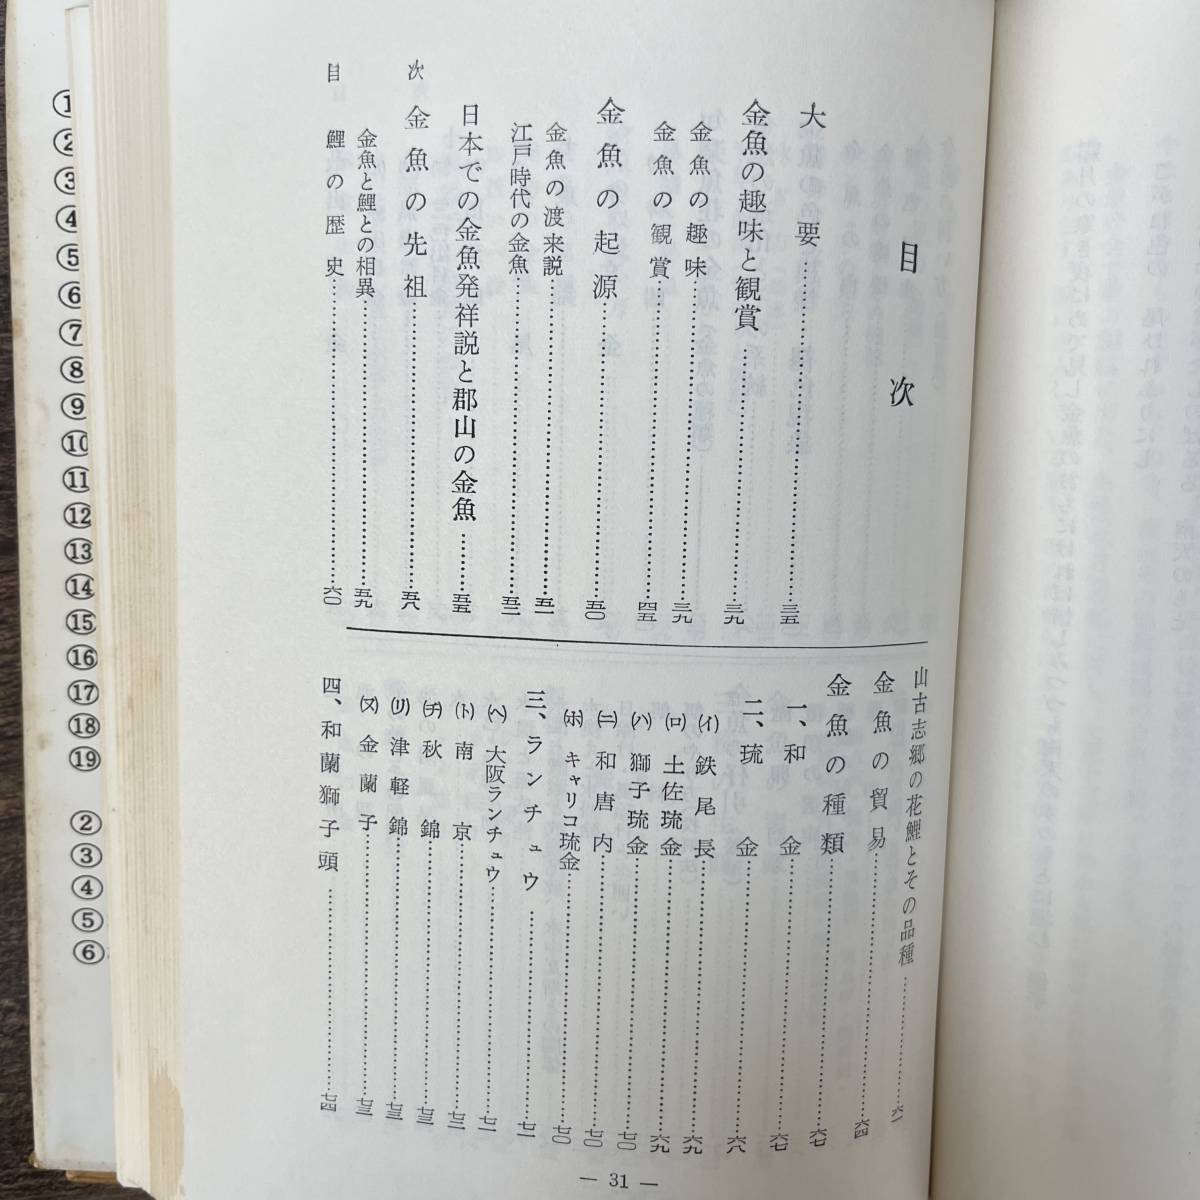 目次
大要……三五
金魚の趣味と観賞……三九
金魚の趣味……三九
金魚の観賞……四五
金魚の起源……五〇
金魚の渡来説……五一
江戸時代の金魚……五二
日本での金魚発祥説と郡山の金魚……五五
金魚の先祖……五八
金魚と鯉との相異……五九
鯉の歴史……六〇
山古志郷の花鯉とその品種……六一
金魚の貿易……六四
金魚の種類……六七
一、和金……六七
二、琉金……六八
(イ) 鉄尾長……六九
(ロ) 土佐琉金……六九
(ハ) 獅子琉金……七〇
(ニ) 和唐内……七〇
(ホ) キャリコ琉金……七〇
三、ランチュウ……七一
(ヘ) 大阪ランチュウ……七一
(ト) 南京……七二
(チ) 秋錦……七三
(リ) 津軽錦……七三
(ヌ) 金蘭子……七三
四、和蘭獅子頭……七四
目次
— 31 —
①
②
③
④
⑤
⑥
⑦
⑧
⑨
⑩
⑪
⑫
⑬
⑭
⑮
⑯
⑰
⑱
⑲
②
③
④
⑤
⑥